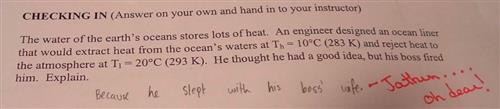 CHECKING IN (Answer on your own and hand in to your instructor)
The water of the earth's oceans stores lots of heat. An engineer designed an ocean liner
that would extract heat from the ocean's waters at Th = 10°C (283 K) and reject heat to
the atmosphere at Tl = 20°C (293 K). He thought he had a good idea, but his boss fired
him. Explain.
Because he slept with his boss' wife. -
oh dear!